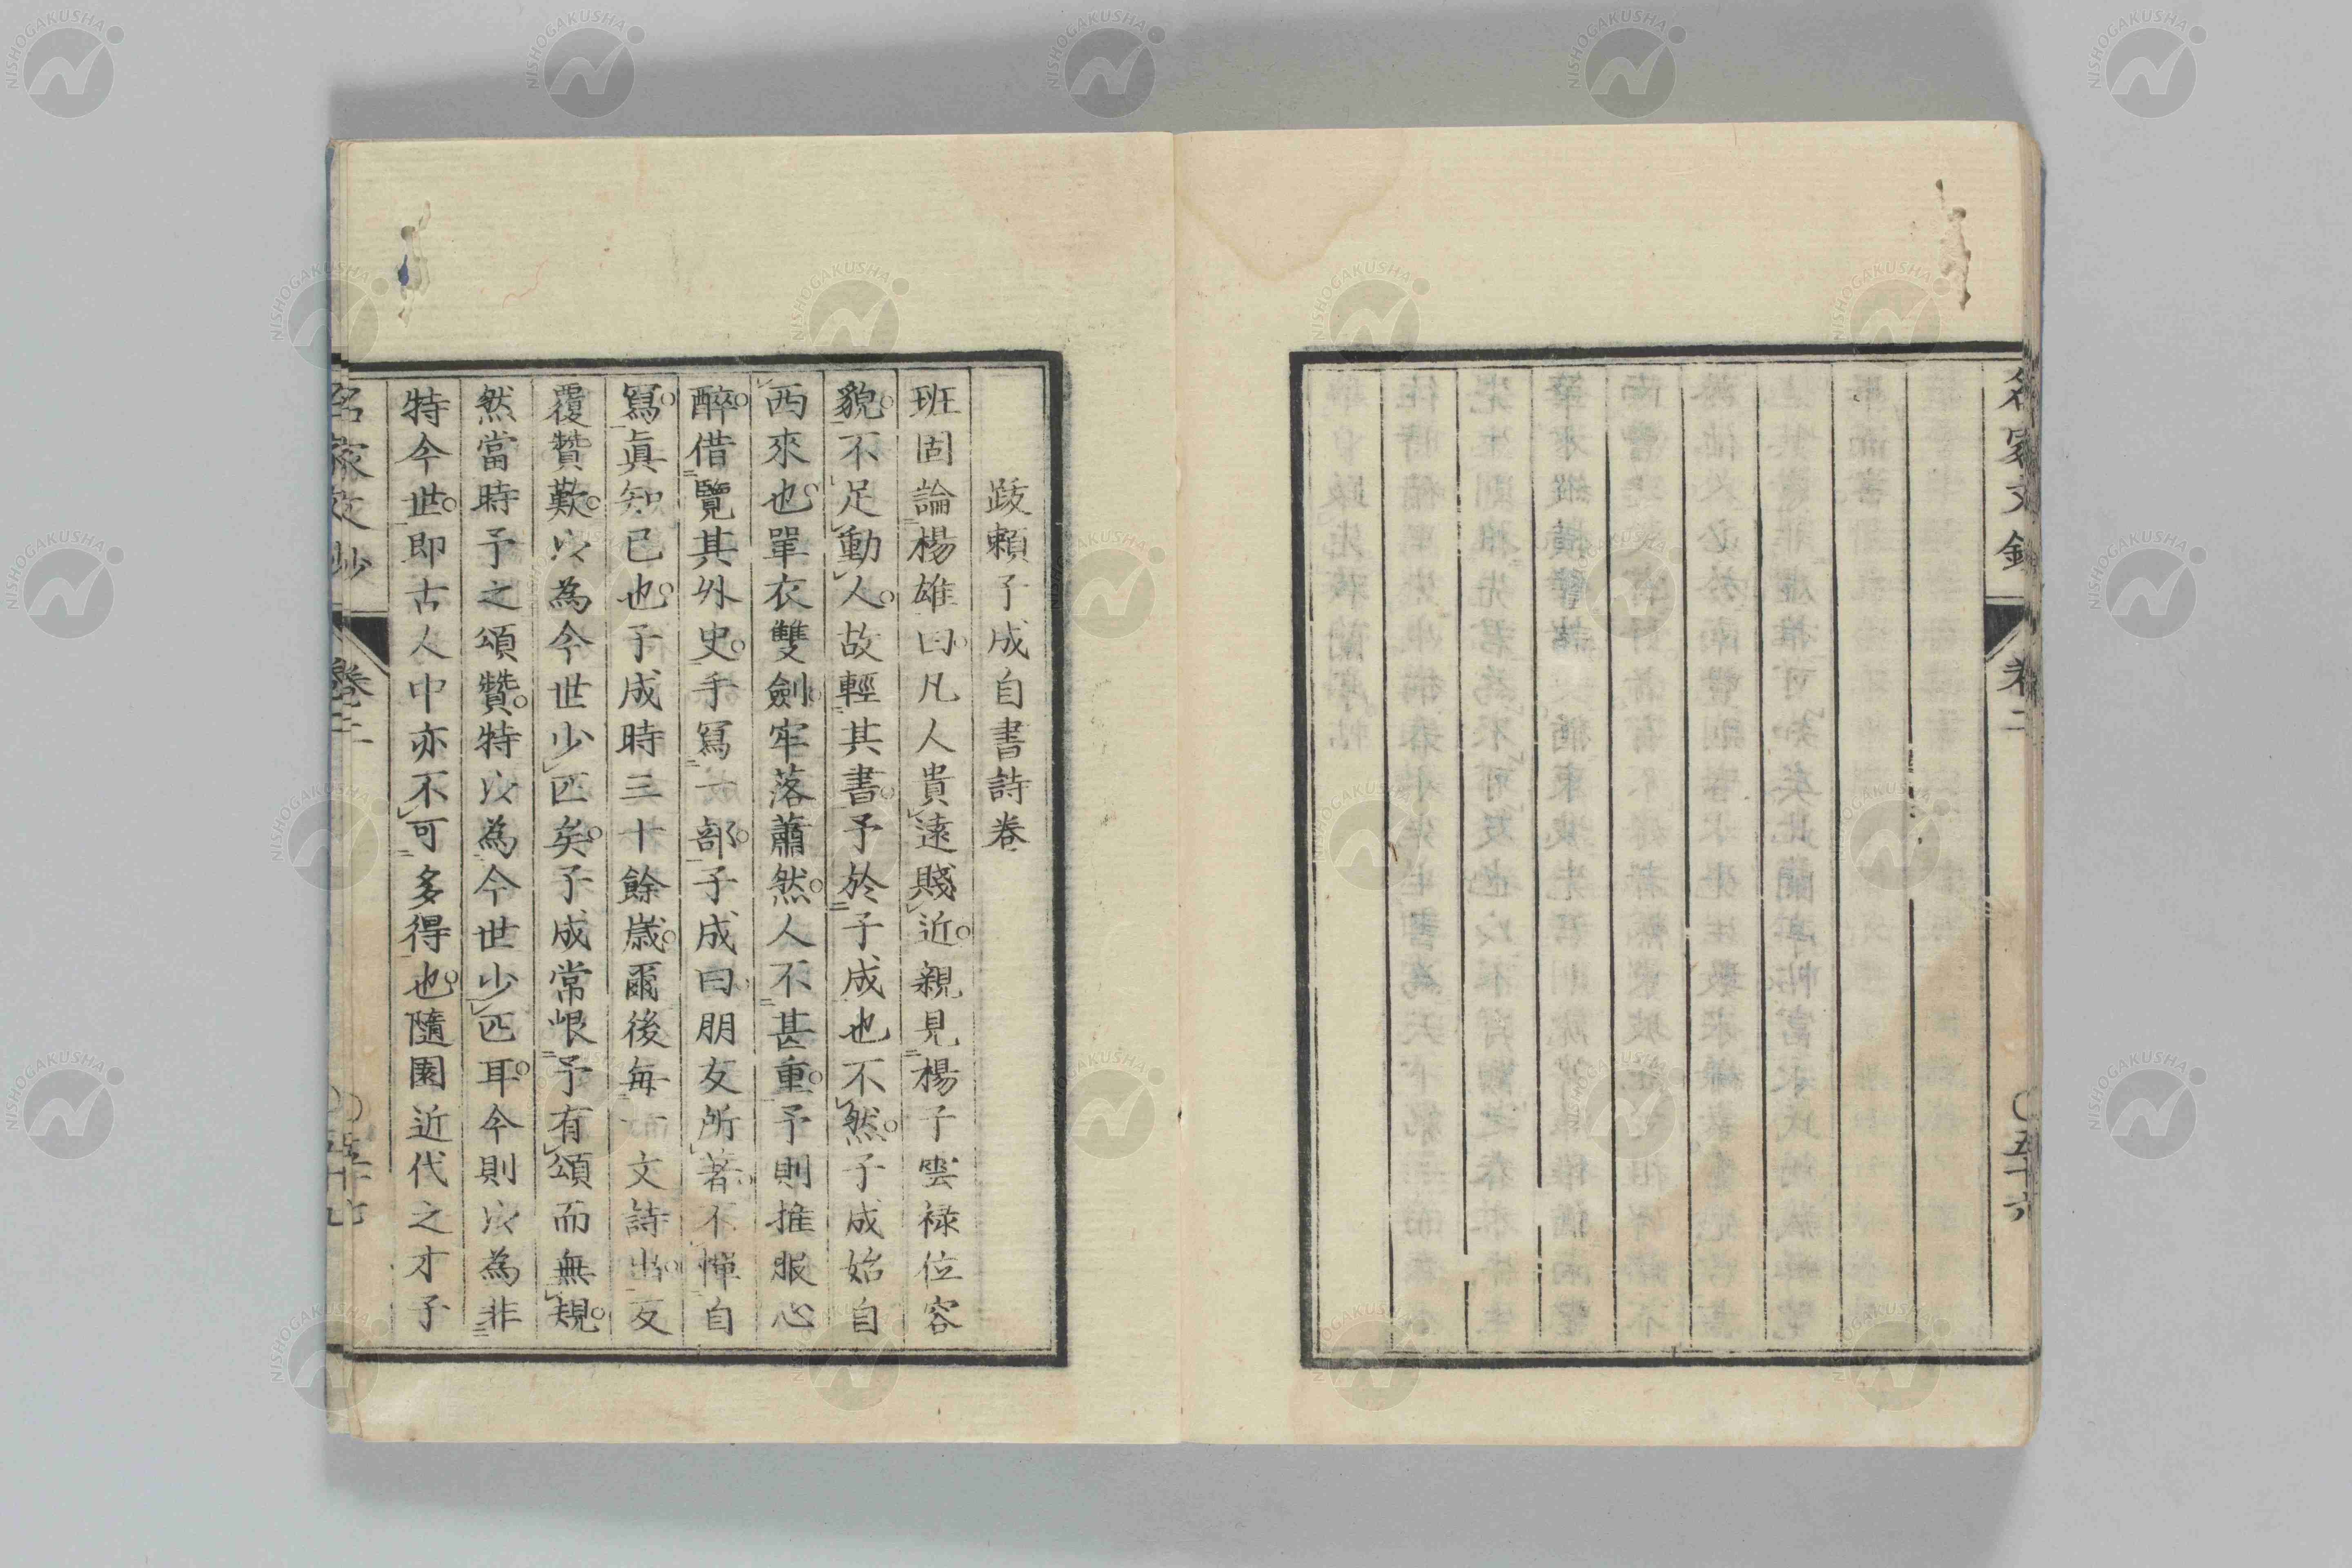 跋頼子成自書詩卷
班固論楊雄曰凡人貴遠賤近親見楊子雲祿位容
貌不足動人故輕其書予於子成也不然子成始自
西來也單衣雙劍牢落蕭然人不甚重予則推服心
醉借覽其外史手寫一部子成曰朋友所著不憚自
寫眞知已也子成時三十餘歲爾後每一文詩出反
覆贊歎以為今世少匹矣子成常恨予有頌而無規
然當時予之頌贊特以為今世少匹耳今則以為非
特今世即古人中亦不可多得也隨園近代之才子